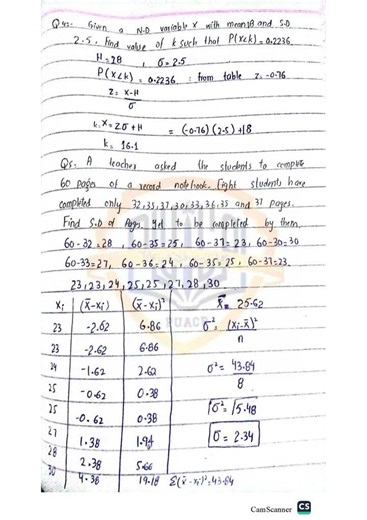 Q4:- Given a N.D variable X with mean 18 and S.D
2.5, Find value of k such that P(x<k) = 0.2236
M = 28 , σ = 2.5
P(x<k) = 0.2236 : from table z = -0.76
z = x-M
σ
k. X = zσ + M = (-0.76)(2.5)+18
k = 16.1
Q5. A teacher asked the students to compute
60 pages of a record notebook. Eight students have
completed only 32, 35, 37, 30, 33, 36, 35 and 37 pages.
Find S.D of Pages yet to be completed by them.
60-32=28 , 60-35=25 , 60-37=23, 60-30=30
60-33=27, 60-36=24 , 60-35=25 , 60-37=23.
23, 23, 24, 25, 25, 27, 28, 30
xi (x̄-xi) (x̄-xi)² x̄ = 25.62
23 -2.62 6.86 σ² = (xi-x̄)²
n
23 -2.62 6.86
24 -1.62 2.62 σ² = 43.84
8
25 -0.62 0.38
25 -0.62 0.38 √σ² = √5.48
27 1.38 1.94 σ = 2.34
28 2.38 5.66
30 4.38 19.18 Σ(x̄-xi)² = 43.84
CamScanner CS